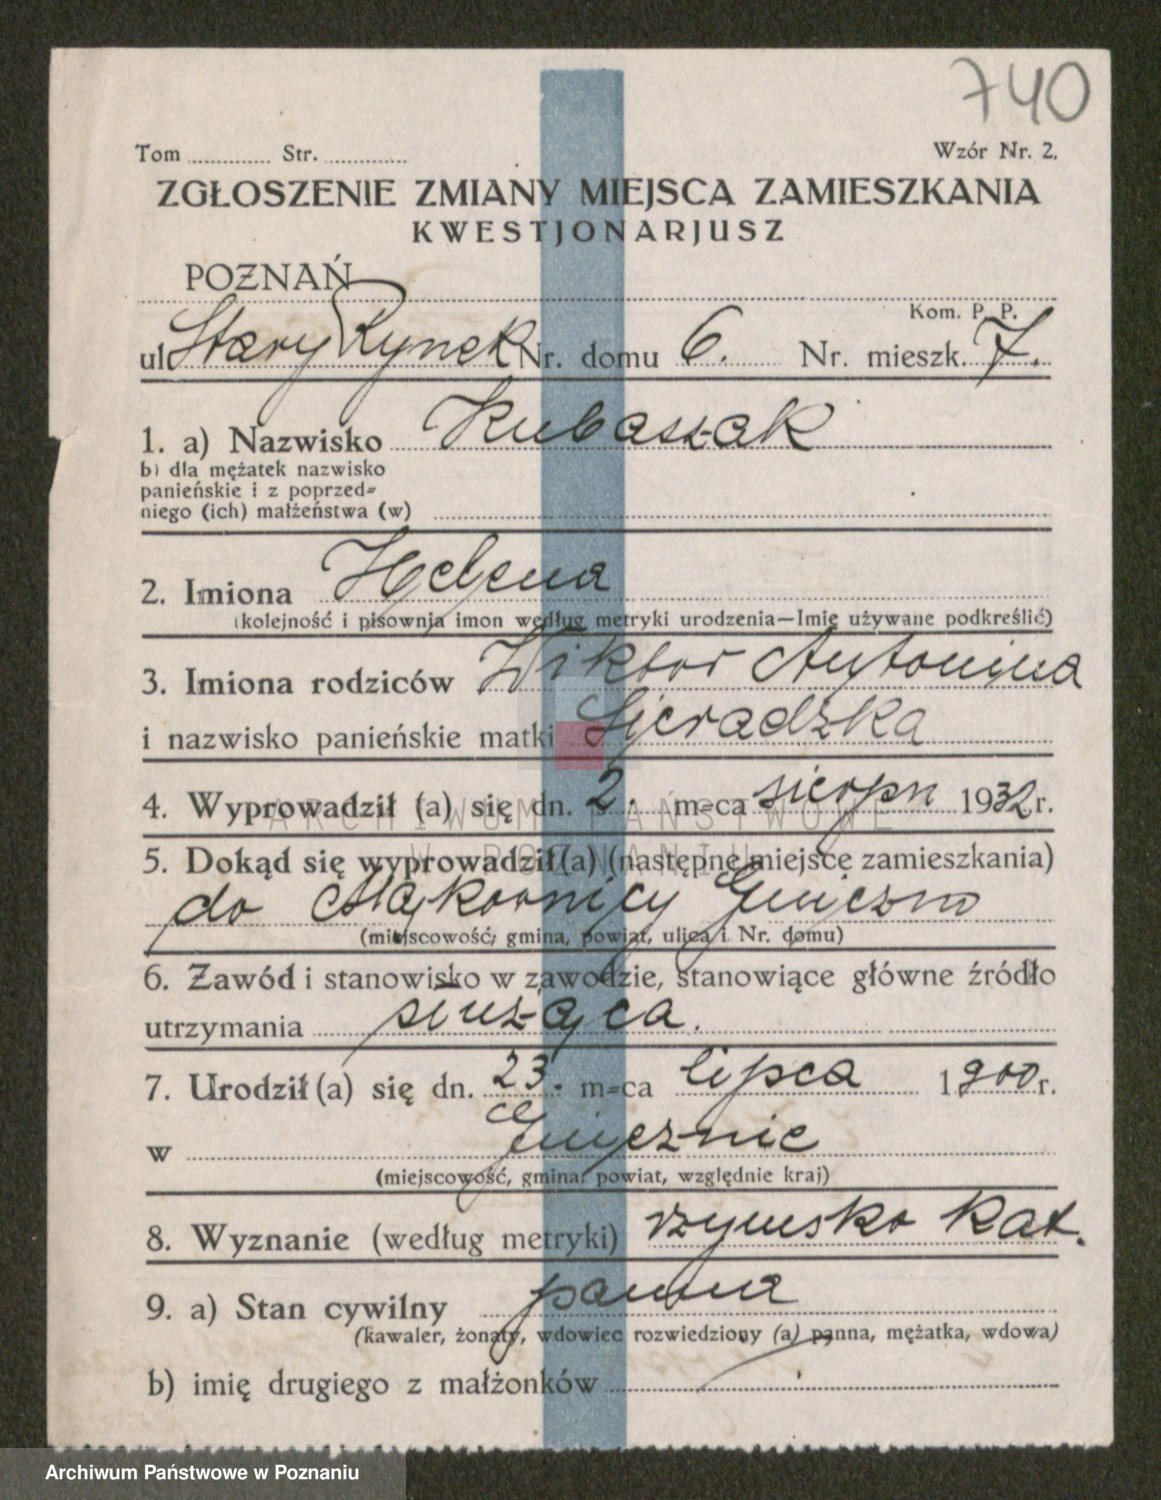 740
Tom ............ Str. ............
Wzór Nr. 2.
ZGŁOSZENIE ZMIANY MIEJSCA ZAMIESZKANIA
KWESTJONARJUSZ
POZNAŃ
Kom. P. P.
ul Stary Rynek Nr. domu 6. Nr. mieszk. 7.
1. a) Nazwisko Kubaszak
b) dla mężatek nazwisko
panieńskie i z poprzed=
niego (ich) małżeństwa (w)
2. Imiona Helena
(kolejność i pisownja imon według metryki urodzenia—Imię używane podkreślić)
3. Imiona rodziców Wiktor Antonina
i nazwisko panieńskie matki Sieradzka
4. Wyprowadził (a) się dn. 2. m=ca sierpn 1932 r.
ARCHIWUM PAŃSTWOWE
W POZNANIU
5. Dokąd się wyprowadził(a) (następne miejsce zamieszkania)
do Mąkownicy Gniezno
(miejscowość, gmina, powiat, ulica i Nr. domu)
6. Zawód i stanowisko w zawodzie, stanowiące główne źródło
utrzymania służąca.
7. Urodził (a) się dn. 23. m=ca lipca 1900 r.
w Gnieźnie
(miejscowość, gmina, powiat, względnie kraj)
8. Wyznanie (według metryki) rzymsko kat.
9. a) Stan cywilny panna
(kawaler, żonaty, wdowiec rozwiedziony (a) panna, mężatka, wdowa)
b) imię drugiego z małżonków
Archiwum Państwowe w Poznaniu